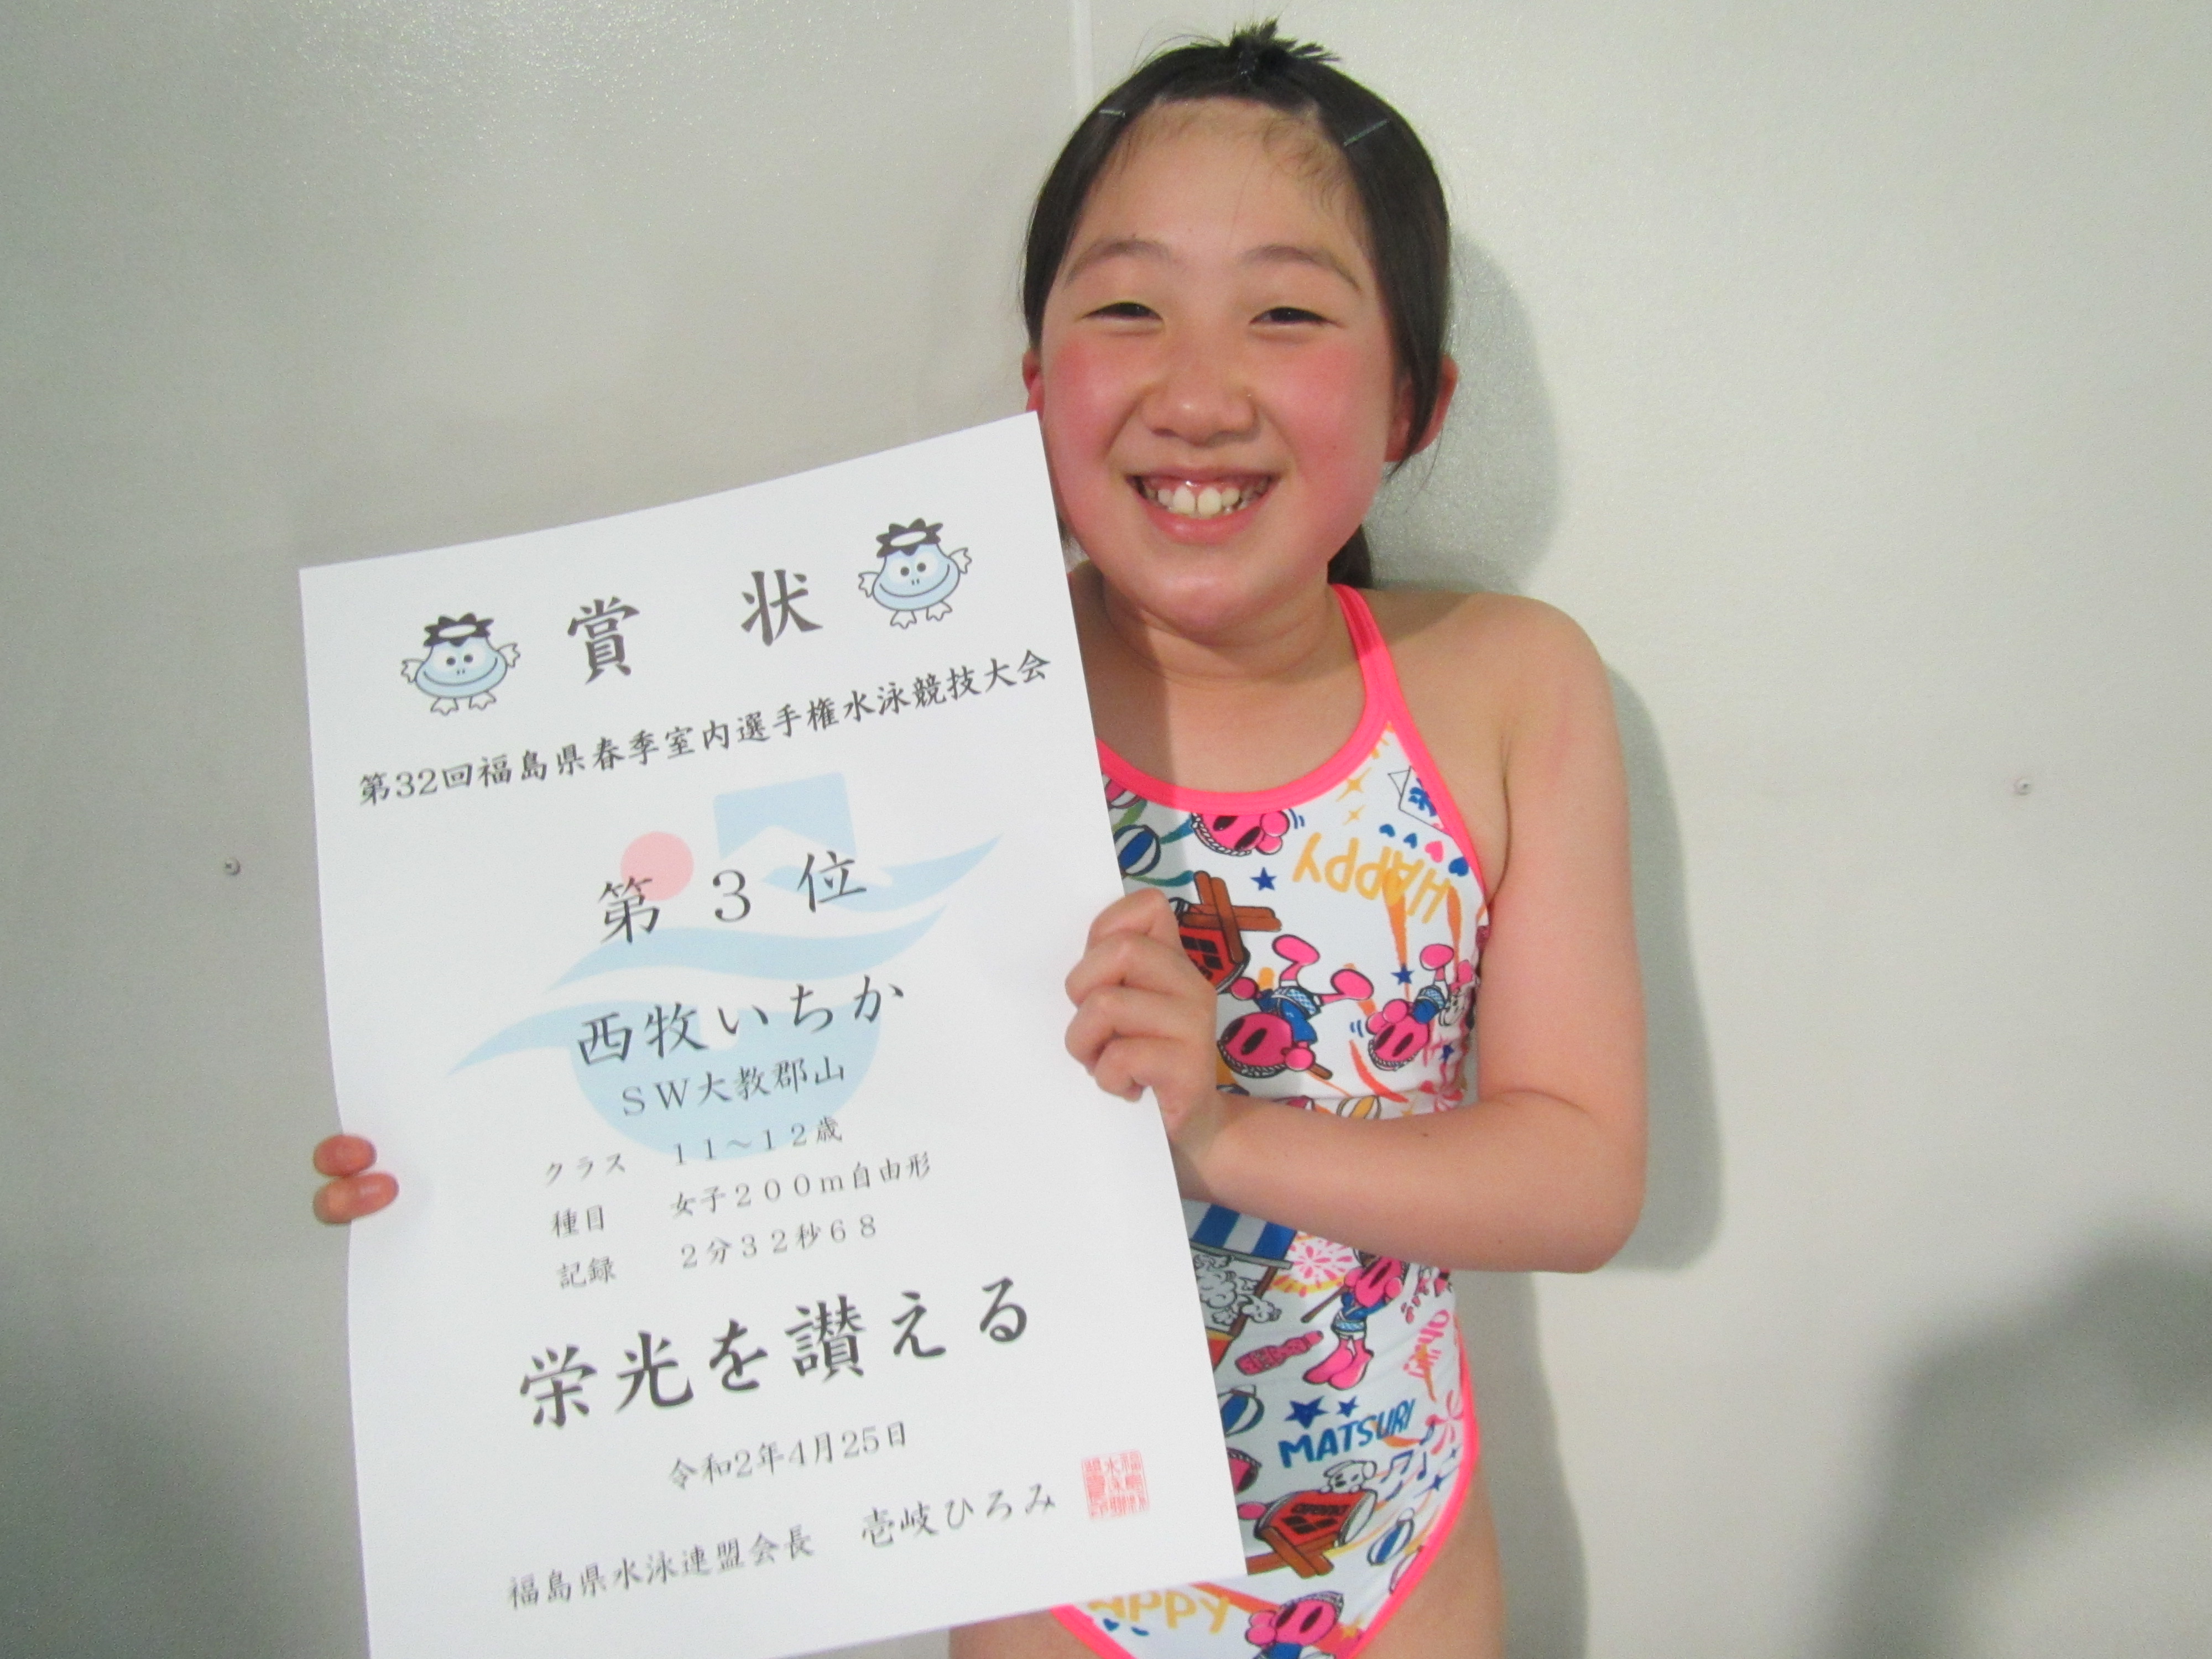 賞状
第32回福島県春季室内選手権水泳競技大会
第３位
西牧いちか
ＳＷ大教郡山
クラス １１～１２歳
種目 女子２００ｍ自由形
記録 ２分３２秒６８
栄光を讃える
令和2年4月25日
福島県水泳連盟会長 壱岐ひろみ
HAPPY
MATSURI
HAPPY